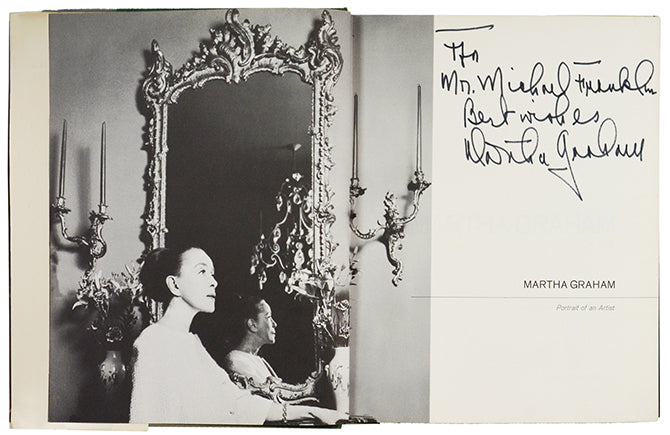 To
Mr. Michael Franklin
Best wishes
Martha Graham
MARTHA GRAHAM
MARTHA GRAHAM
Portrait of an Artist